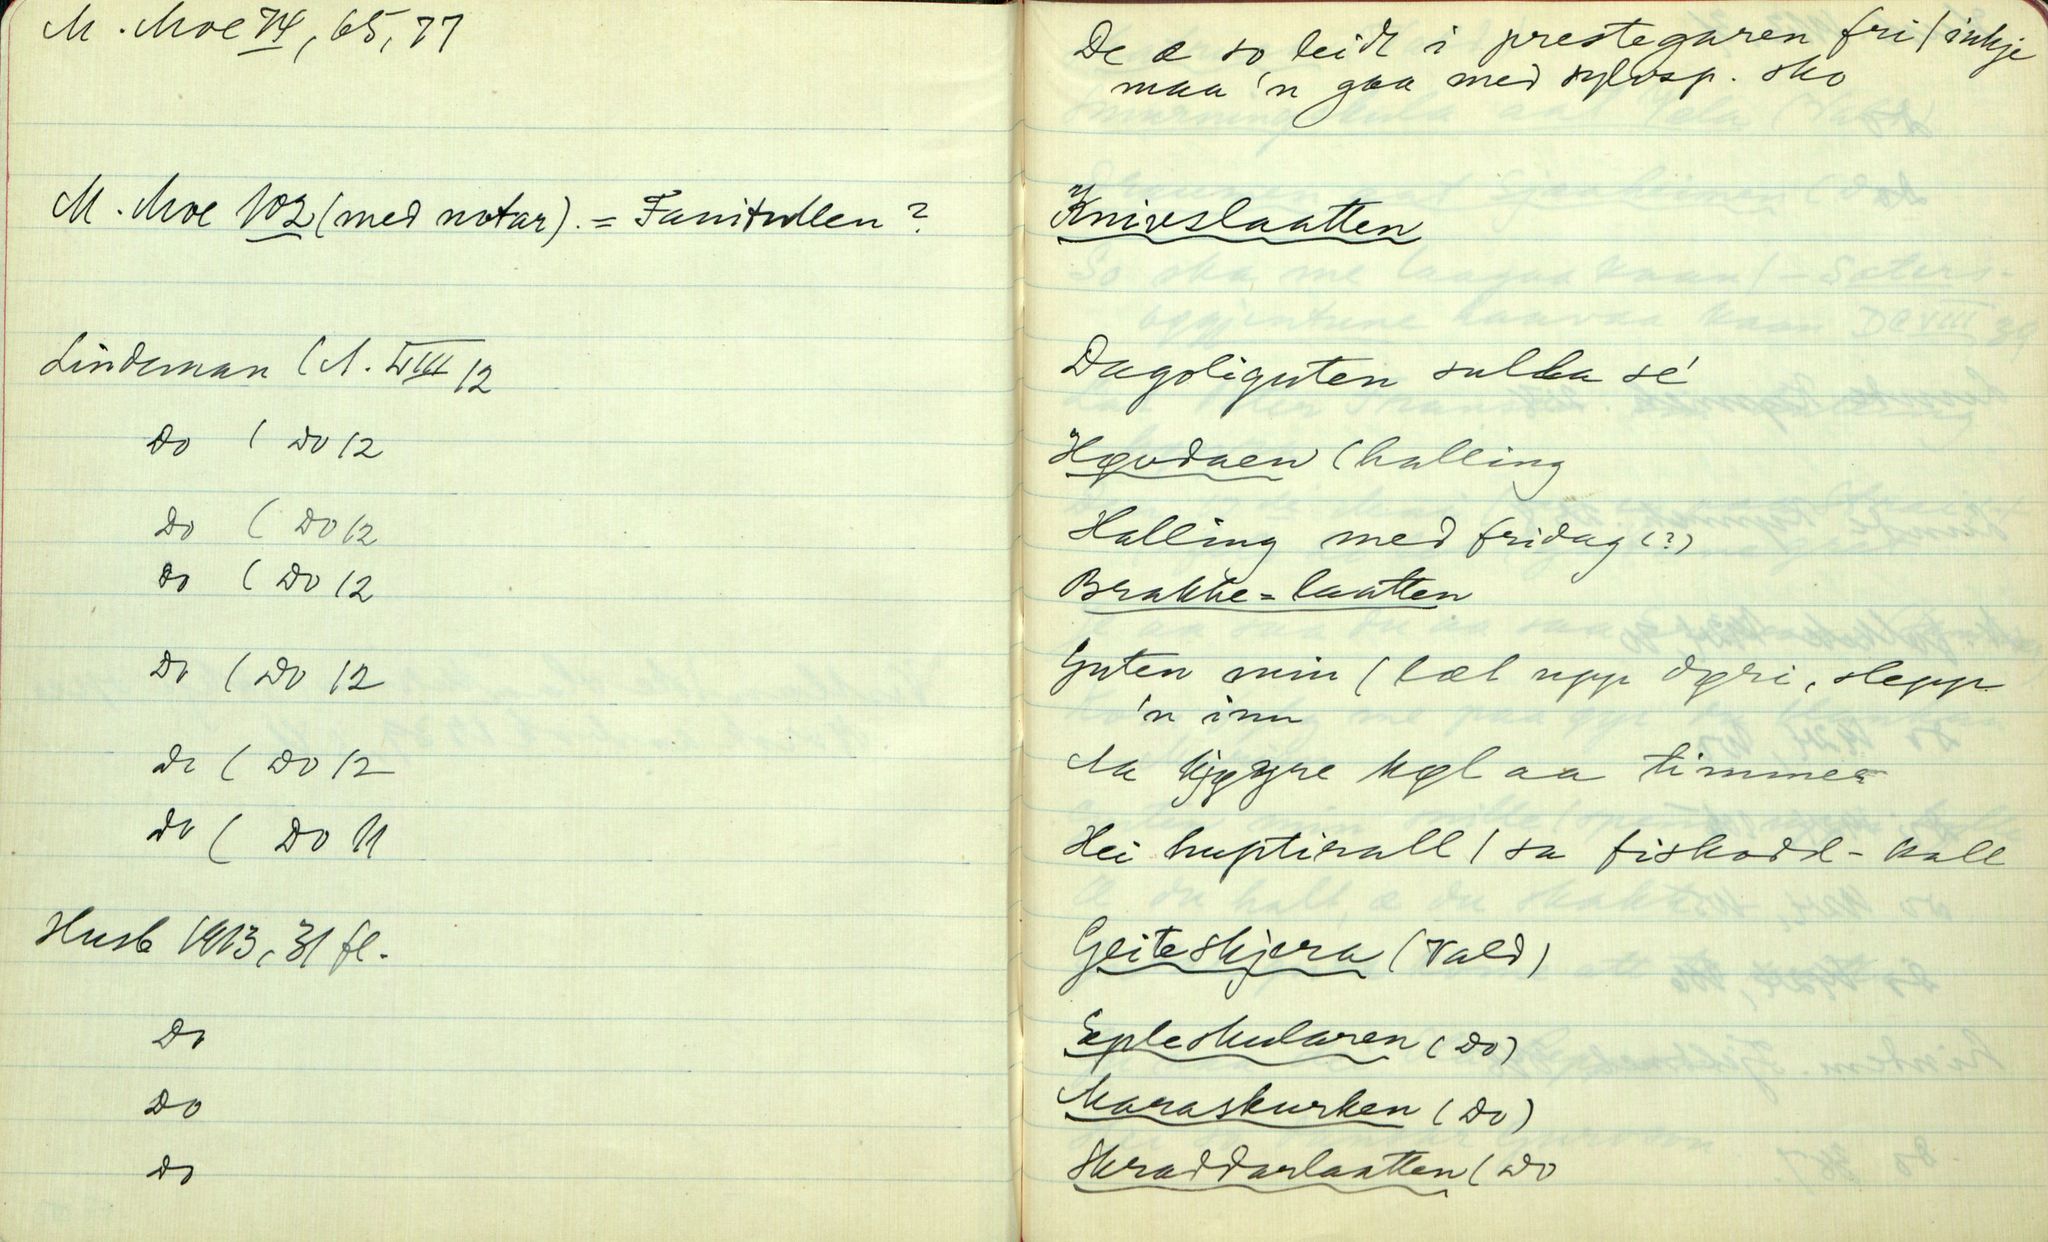 M. Moe 74, 65, 77
M. Moe 102 (med notar). = Fanitullen ?
Lindeman (A. LVIII 12
Do ( Do 12
Do ( Do 12
Do ( Do 12
Do ( Do 12
Do ( Do 12
Do ( Do 11
Husb 1913, 31 fl.
Do
Do
Do
De æ so leidt i prestegaren fri / inkje
maa 'n gaa med sylvsp. sko
Knivslaatten
Dagoliguten sulka se'
Høvdaen (halling
Halling med fridag (?)
Brakke-laatten
Guten min ( læt upp døri, slepp
'n inn
Aa kjøyre køl aa timmer
Hei huptirall / sa fiskodd-kall
Geiteskjera (Vald)
Epleskularen (Do)
Maraskurken (Do)
Skraddarlaatten (Do